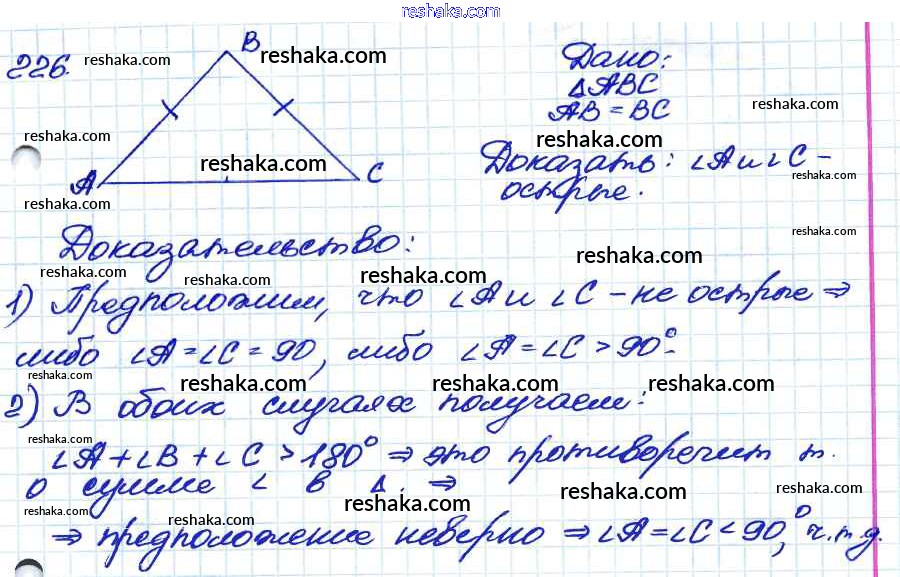 reshaka.com
226. reshaka.com
B
reshaka.com
Дано:
∆ABC
AB = BC
reshaka.com
reshaka.com
reshaka.com
A C
Доказать: ∠A и ∠C – reshaka.com
острые.
reshaka.com
Доказательство:
reshaka.com
reshaka.com reshaka.com reshaka.com
1) Предположим, что ∠A и ∠C – не острые ⇒
либо ∠A = ∠C = 90, либо ∠A = ∠C > 90°.
reshaka.com reshaka.com reshaka.com reshaka.com
2) В обоих случаях получаем:
reshaka.com
∠A + ∠B + ∠C > 180° ⇒ это противоречит т.
о сумме ∠ в ∆. ⇒
reshaka.com reshaka.com reshaka.com reshaka.com
reshaka.com reshaka.com
⇒ предположение неверно ⇒ ∠A = ∠C < 90°, ч.т.д.
reshaka.com reshaka.com